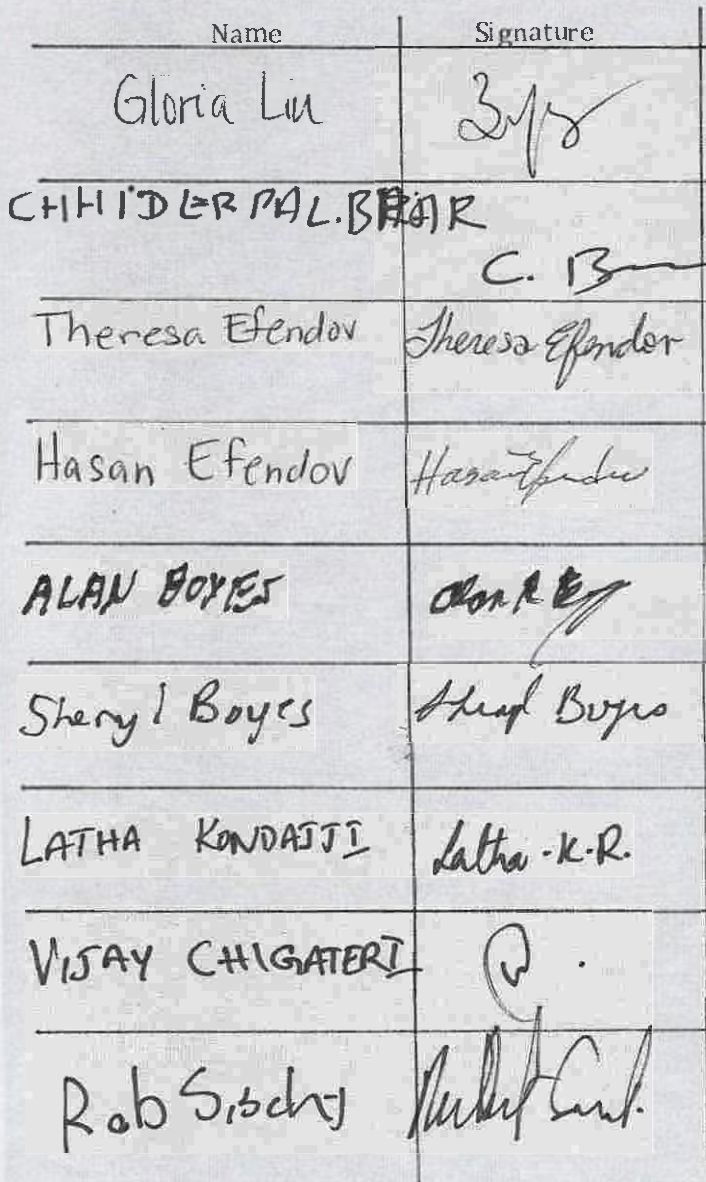 Name Signature
Gloria Liu
CHHIDERPAL.BRAR
C. B
Theresa Efendov Theresa Efendov
Hasan Efendov Hasan Efendov
ALAN BOYES Alan R
Sheryl Boyes Sheryl Boyes
LATHA KONDAJJI Latha.K.R.
VIJAY CHIGATERI
Rob Sischy